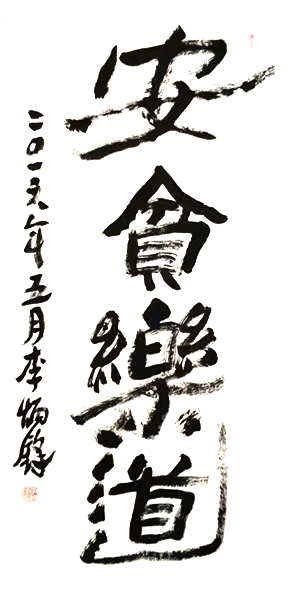 安貧樂道
二〇一六年五月李炳鋒